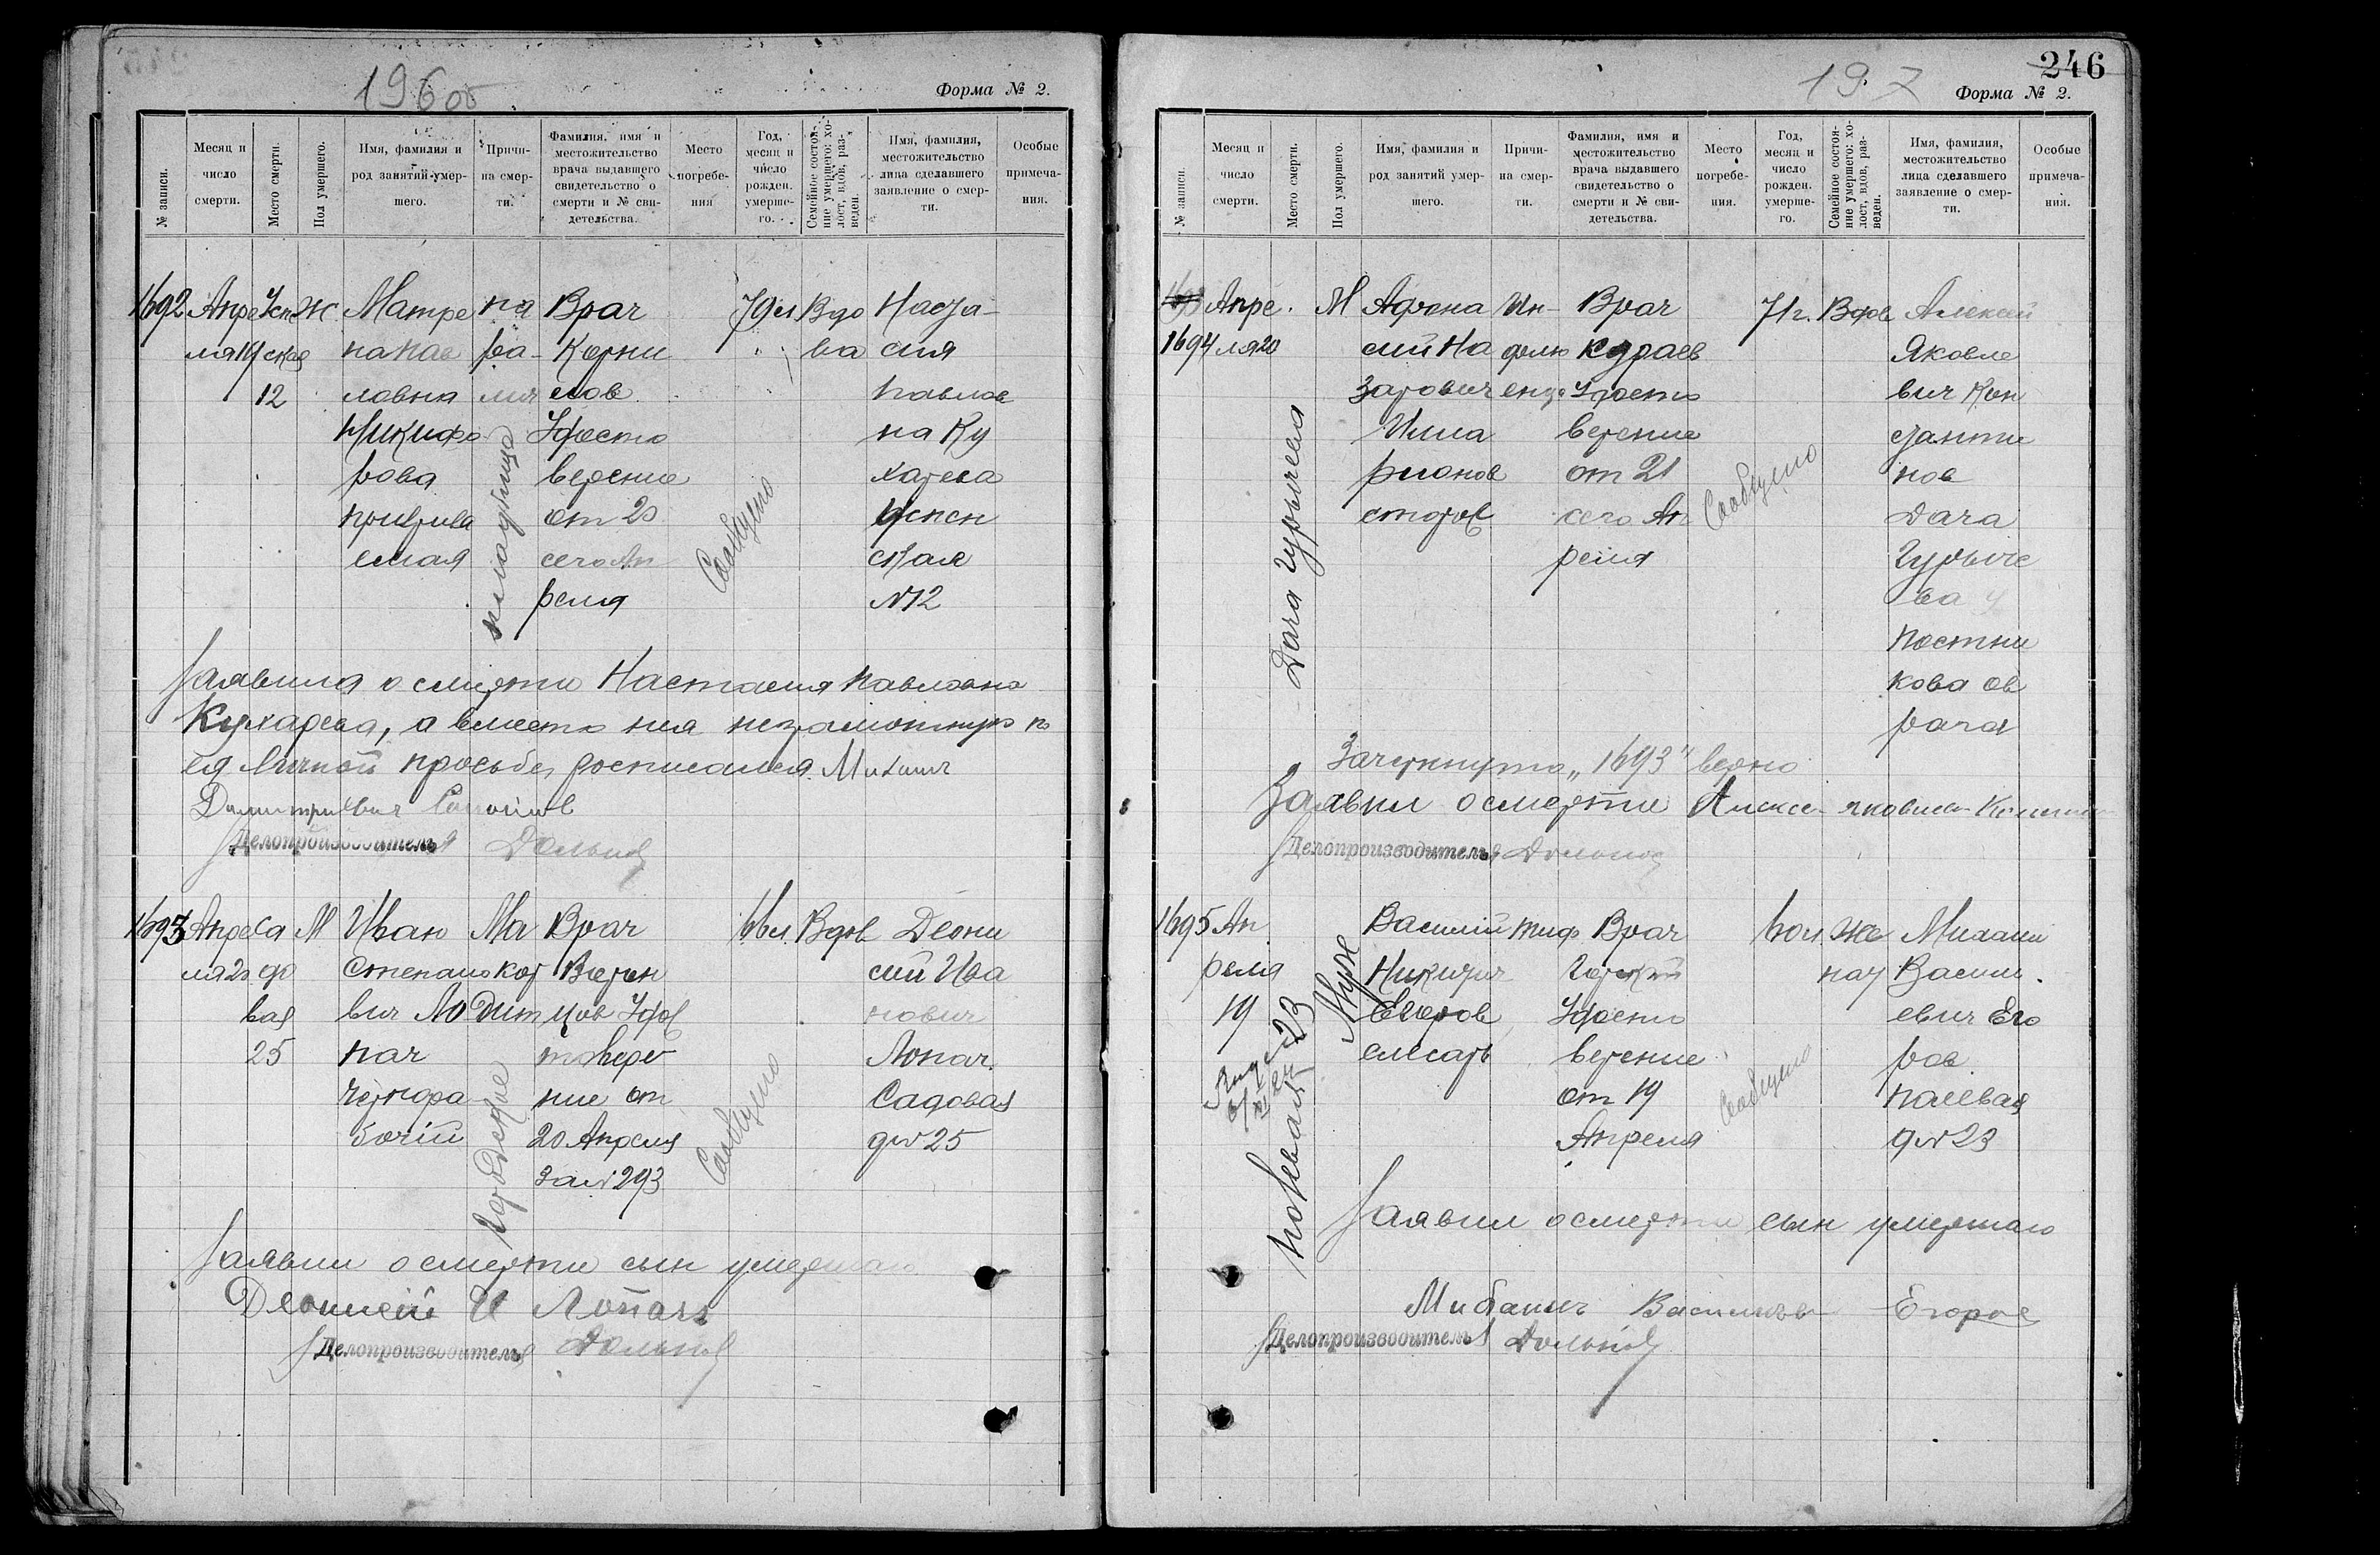 196 об
Форма № 2.
№ записи.
Месяц и число смерти.
Место смерти.
Пол умершего.
Имя, фамилия и род занятий умершего.
Причина смерти.
Фамилия, имя и местожительство врача выдавшего свидетельство о смерти и № свидетельства.
Место погребения
Год, месяц и число рожден. умершего.
Семейное состояние умершего: холост, вдов, разведен.
Имя, фамилия, местожительство лица сделавшего заявление о смерти.
Особые примечания.
1692
Апре
ля 19
Успе
ская
12
Ж
Матре
на Пав
ловна
Никифо
рова
на
ра
лич
Врач
Корни
лов
Удосто
верение
от 20
сего Ап
реля
Сообщено
79 л
Вдо
ва
Наста
сия
Павлов
на Ку
харева
Успен
ская
№ 12
Заявила о смерти Настасия Павловна
Кухарева, а вместо нея неграмотную по
ея личной просьбе росписался
Делопроизводитель
1693
Апре
ля 20
Са
до
вая
25
М
Иван
Степано
вич Ло
пач
Чернора
бочий
Городское
Врач
Верен
цов Удос
товере
ние от
20 Апреля
за № 293
Сообщено
66 л.
Вдов
Деони
сий Ива
нович
Лопач.
Садовая
д № 25
Заявил о смерти сын умершаго
Деонисий И Лопачь
Делопроизводитель
246
19 7
Форма № 2.
№ записи.
Месяц и число смерти.
Место смерти.
Пол умершего.
Имя, фамилия и род занятий умершего.
Причина смерти.
Фамилия, имя и местожительство врача выдавшего свидетельство о смерти и № свидетельства.
Место погребения.
Год, месяц и число рожден. умершего.
Семейное состояние умершего: холост, вдов, разведен.
Имя, фамилия, местожительство лица сделавшего заявление о смерти.
Особые примечания.
1693
1694
Апре
ля 20
Дача Гурычева
М
Афона
сий На
зарович
Илла
рионов
сторож
Ин
флю
енца
Врач
Кураев
Удосто
верение
от 21
сего Ап
реля
Сообщено
71 г.
Вдов
Алексей
Яковле
вич Кон
станти
нов
Дача
Гурыче
ва
Постни
кова ов
рага
Зачеркнуто „1693" верно
Заявил о смерти
Делопроизводитель
1695
Ап
реля
19
Полевая 23
Муж
Василий
Никитич
Егоров
слесарь
тиф
Врач
Удосто
верение
от 19
Апреля
Сообщено
60 л
Же
нат
Михаил
Василь
евич Его
ров
Полевая
д № 23
Заявил о смерти сын умершаго
Михаил Васильев Егоров
Делопроизводитель